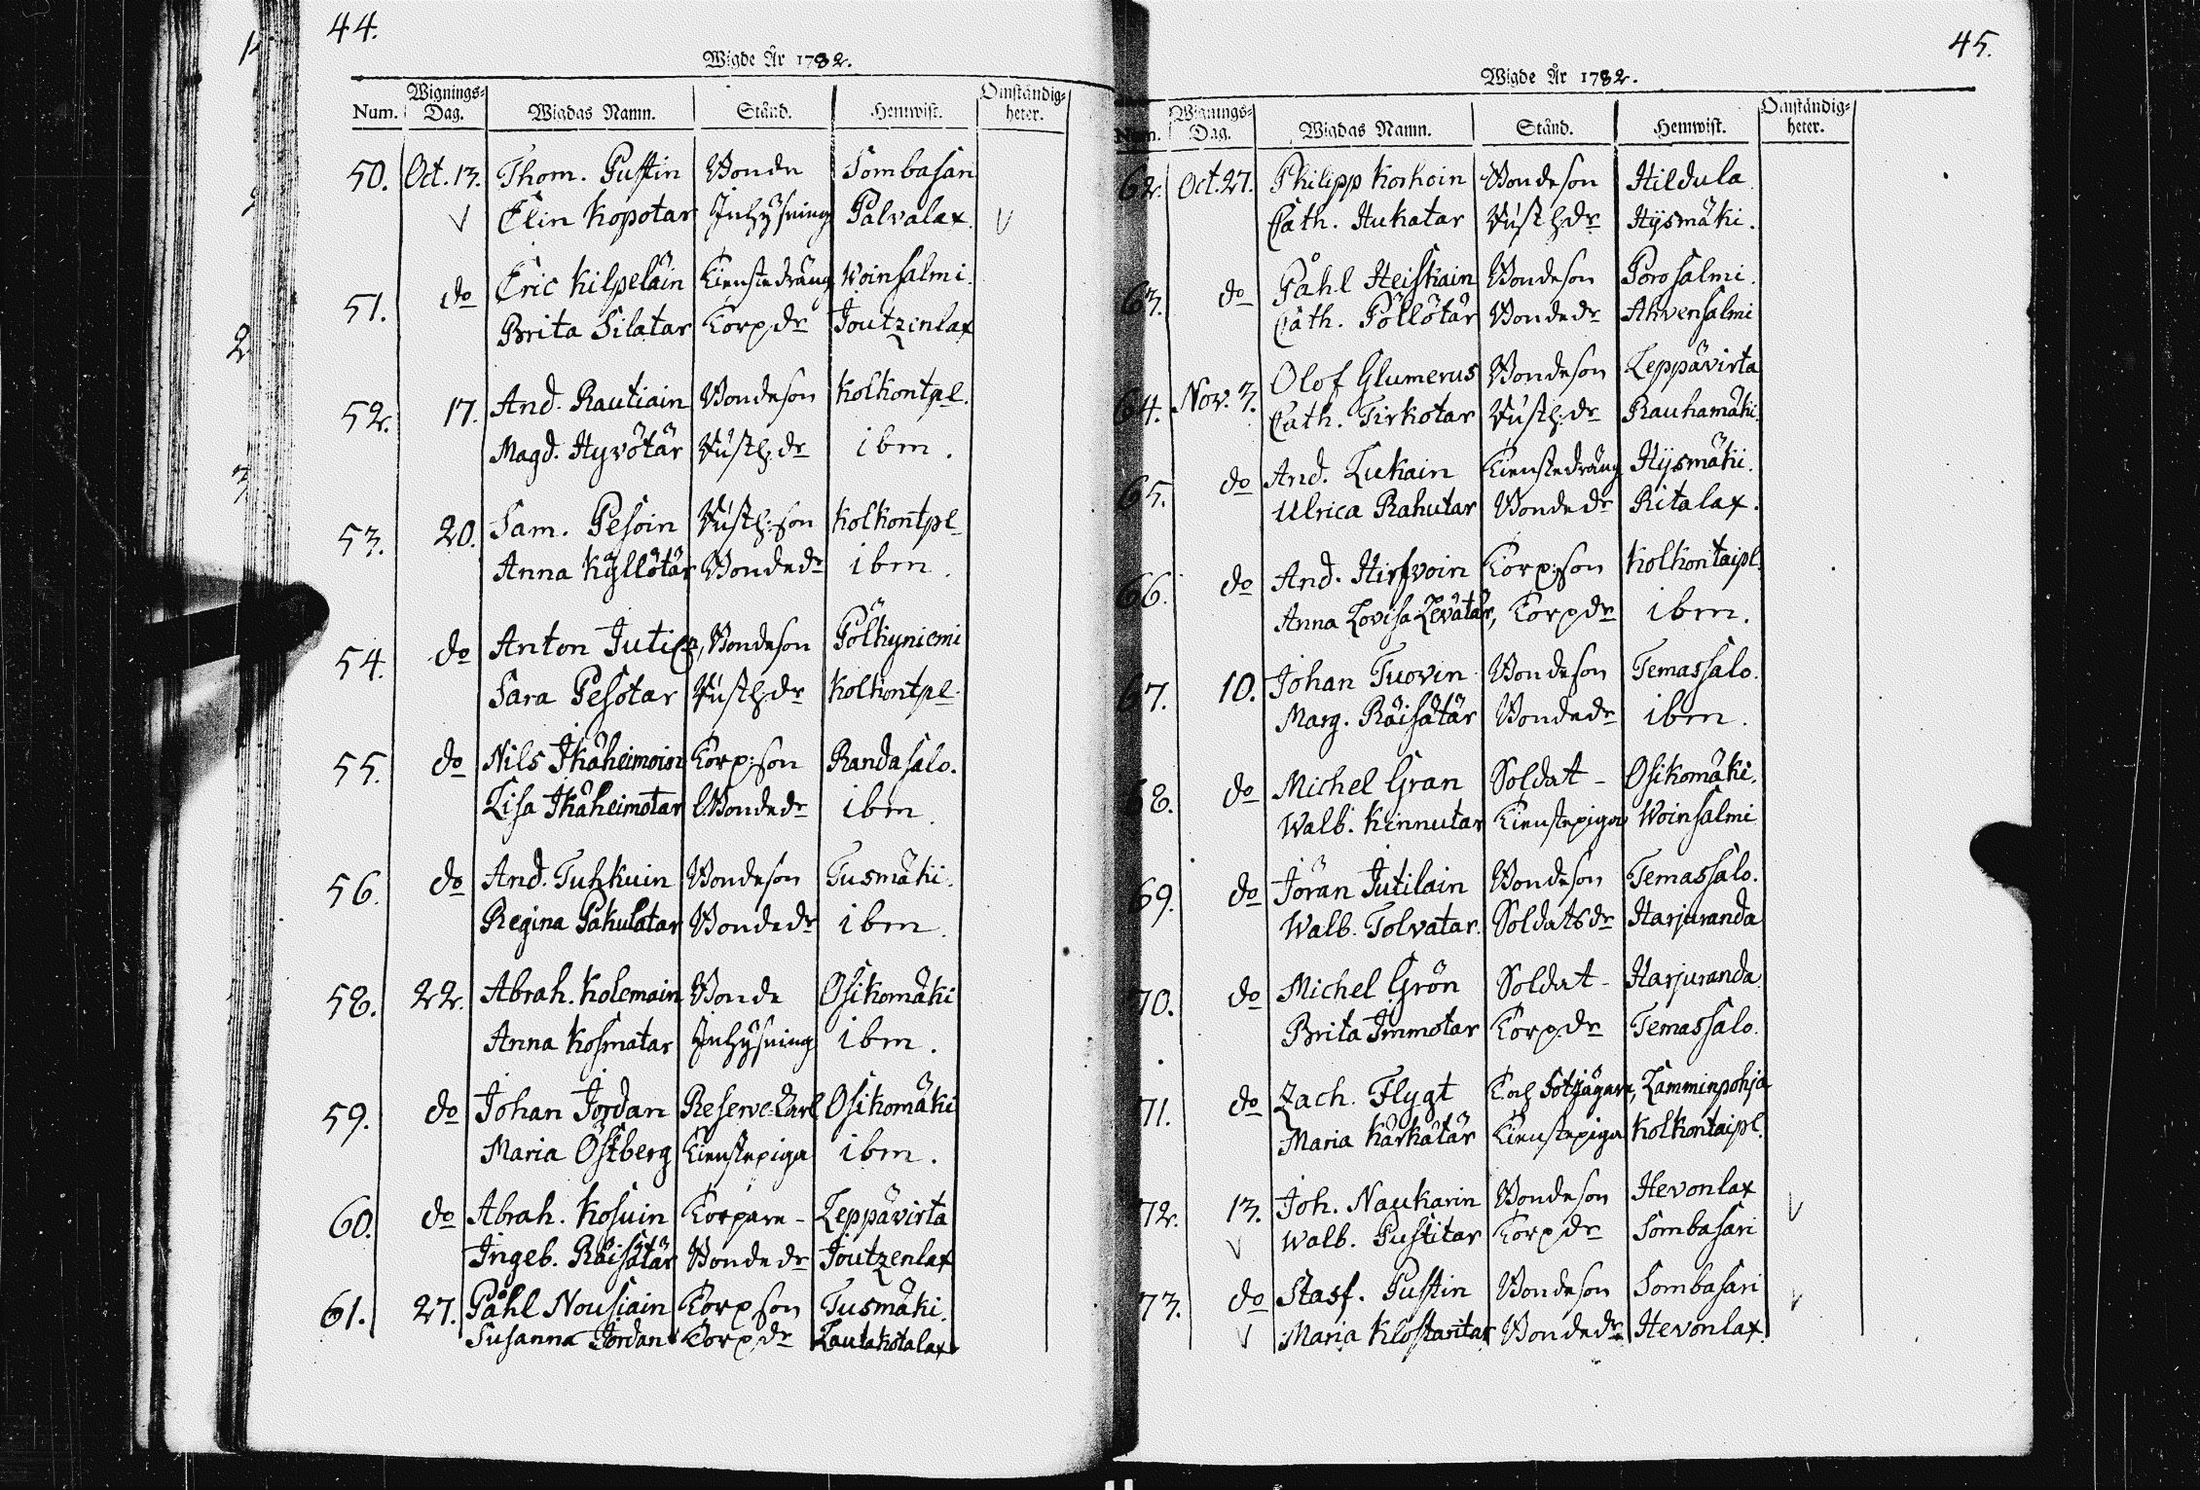 44.
Wigde År 1782.
Num. Wignings-Dag. Wigdas Namn. Stånd. Hemwist. Omständig-heter.
50. Oct. 13. Thom. Pustin Bonde Sombasari
√ Elin Kopotar Inhysning Palvalax. √
51. do Eric Kilpeläin Tienstedräng Woinsalmi.
Brita Silatar Torp.dr Joutzenlax
52. 17. And. Rautiain Bondeson Kolkontpl.
Magd. Hyvötär Rusth.dr ibm.
53. 20. Sam. Pesoin Rusth:son Kolkontpl
Anna Kyllötär Bondedr ibm.
54. do Anton Jutil, Bondeson Pölkyniemi
Sara Pesotar Rusth.dr Kolkontpl
55. do Nils Ikäheimoin Torp:son Randasalo.
Lisa Ikäheimotar Bondedr ibm.
56. do And. Tuhkuin Bondeson Tusmäki.
Regina Pakulatar Bondedr ibm.
58. 22. Abrah. Kolemain Bonde Osikomäki
Anna Kosmatar Inhysning ibm.
59. do Johan Jordan Reserve-Karl Osikomäki
Maria Östberg Tienstepiga ibm.
60. do Abrah. Kosuin Torpare - Leppävirta
Ingeb. Räisätär Bondedr Joutzenlax
61. 27. Påhl Nousiain Torpson Tusmäki.
Susanna Jordan Torp.dr Lautakotalax
45.
Wigde År 1782.
Num. Wignings-Dag. Wigdas Namn. Stånd. Hemwist. Omständig-heter.
62. Oct. 27. Philipp Korhoin Bondeson Hildula
Cath. Hukatar Rusth.dr Hysmäki.
63. do Påhl Heiskain Bondeson Porosalmi.
Cath. Pöllötär Bondedr Ahvensalmi
64. Nov. 3. Olof Glumerus Bondeson Leppävirta
Cath. Tirkotar Rusth:dr Rauhamäki.
65. do And. Lukain Tienstedräng Hysmäki.
Ulrica Rahutar Bondedr Ritalax.
66. do And. Hirfvoin Torp:son Kolkontaipl.
Anna Lovisa Levätär, Torpdr ibm.
67. 10. Johan Tuovin Bondeson Temassalo.
Marg. Räisätär Bondedr ibm.
68. do Michel Gran Soldat - Osikomäki.
Walb. Kinnutar Tienstepiga Woinsalmi
69. do Jöran Jutilain Bondeson Temassalo.
Walb. Tolvatar. Soldatsdr Harjuranda
70. do Michel Grön Soldat - Harjuranda
Brita Immotar Torp.dr Temassalo.
71. do Zach. Flygt fotjägare, Lamminpohja
Maria Kärkätär Tienstepiga Kolkontaipl.
72. 13. Joh. Naukarin Bondeson Hevonlax √
√ Walb. Pustitar Torp.dr Sombasari
73. do Staf. Pustin Bondeson Sombasari √
√ Maria Klostaritar Bondedr Hevonlax.